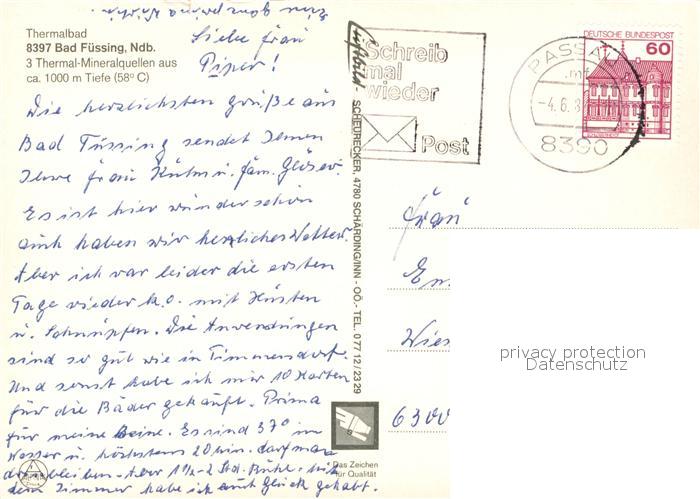 Thermalbad
8397 Bad Füssing, Ndb.
3 Thermal-Mineralquellen aus
ca. 1000 m Tiefe (58° C)
Liebe Frau
Piper!
Die herzlichsten Grüße aus
Bad Füssing sendet Ihnen
Ihre Frau Kühn u. Fam. Gläser.
Es ist hier wunderschön
auch haben wir herrliches Wetter.
Aber ich war leider die ersten
Tage wieder k.o. mit Husten
u. Schnupfen. Die Anwendungen
sind so gut wie in Timmendorf.
Und sonst habe ich mir 10 Karten
für die Bäder gekauft. Prima
für meine Beine. Es sind 37° im
Wasser u. höchstens 20 min. darf man
drin bleiben. Aber 1½-2 Std. Ruhe. Mit
dem Zimmer habe ich auch Glück gehabt.
Luftbild - SCHEURECKER, 4780 SCHÄRDING/INN - OÖ.- TEL. 0 77 12 / 23 29
Das Zeichen
für Qualität
Schreib
mal
wieder
Post
PASSAU
-4.6.8
8390
DEUTSCHE BUNDESPOST
60
Frau
Em
Wies
6300
privacy protection
Datenschutz